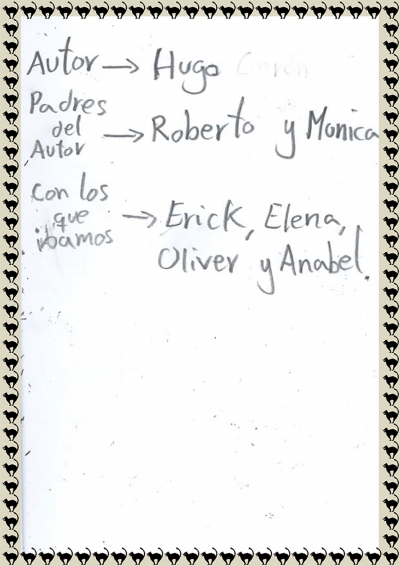 Autor → Hugo
Padres
del
Autor → Roberto y Monica
Con los
que
ibamos → Erick, Elena,
Oliver y Anabel.